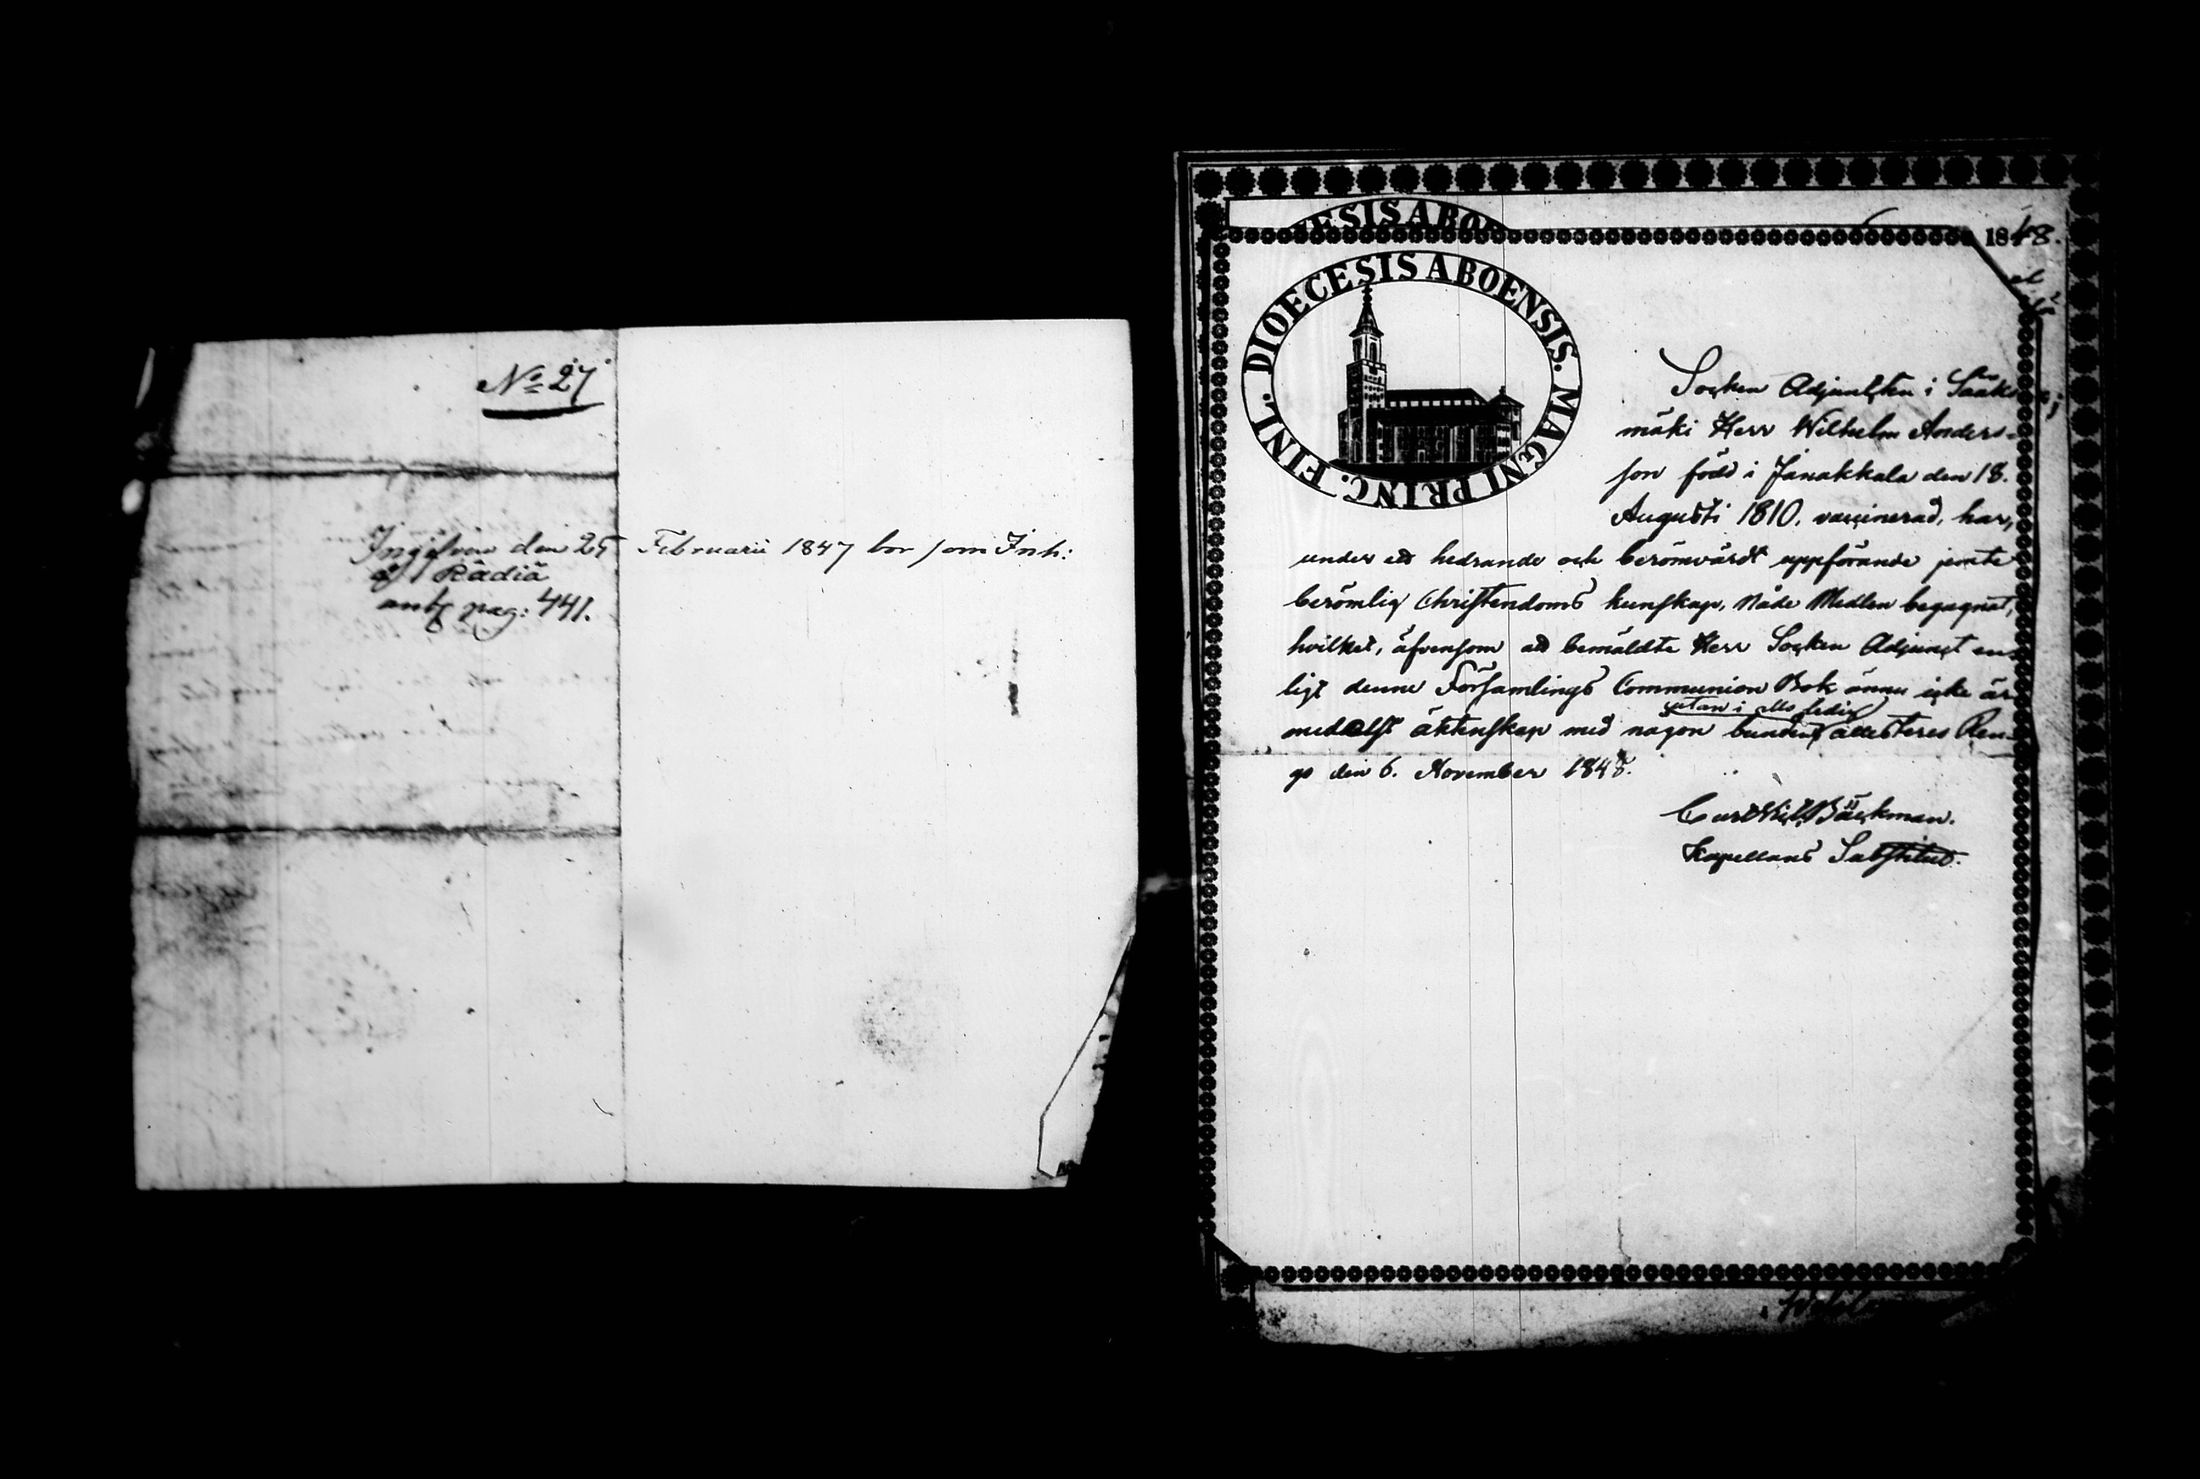 No 27
Ingifven den 25 Februarii 1847 bor som Inh:
af Rädiä
antg pag: 441.
ESIS ABOE
1848.
DIOECESIS ABOENSIS. MAGNI PRINC. FINL.
Socken Adjuncten i Sääks-
mäki Herr Wilhelm Anders-
son född i Janakkala den 18.
Augusti 1810, vaccinerad, har,
under ett hedrande och berömvärdt uppförande jemte
berömlig Christendoms kunskap, Nåde Medlen begagnat,
hvilket, äfvensom att bemäldte Herr Socken Adjunct en-
ligt denne Församlings Communion Bok ännu icke är
utan i allo ledig
medelst äktenskap med någon bunden, attesteres Ren-
go den 6. November 1848.
Carl Wilh Bäckman.
Kapellans Substitut.